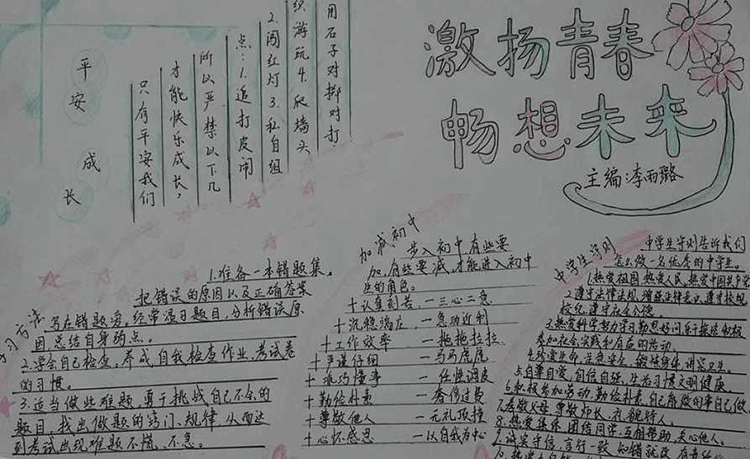 激扬青春
畅想未来
主编:李雨璐
平安成长
只有平安我们
才能快乐成长,
所以严禁以下几
点:1.追打皮闹
2.闯红灯3.私自组
织游玩4.爬墙头
用石子对掷对打
学习方法
1.准备一本错题集。
把错误的原因以及正确答案
写在错题旁,经常温习题目,分析错误原
因,总结自身弱点。
2.学会自己检查,养成自我检查作业、考试卷
的习惯。
3.适当做些难题,勇于挑战自己不会的
题目,找出做题的窍门、规律,从而达
到考试出现难题不慌、不急。
加减初中
步入初中有些要
加,有些要减,才能进入初中
生的角色。
+认真刻苦 -三心二意
+沉稳端庄 -急功近利
+工作效率 -拖拖拉拉
+严谨仔细 -马马虎虎
+乖巧懂事 -任性调皮
+勤俭朴素 -奢侈过费
+尊敬他人 -无礼顶撞
+心怀感恩 -以自我为中心
中学生守则
中学生守则告诉我们
怎么做一名优秀的中学生。
1.热爱祖国,热爱人民,热爱中国共产党
2.遵守法律法规,增强法律意识。遵守校规
校纪,遵守社会公德。
3.热爱科学,努力学习,勤思好问,乐于探究,积极
参加社会实践和有益的活动。
4.珍爱生命,注意安全,锻炼身体,讲究卫生。
5.自尊自爱,自信自强,生活习惯文明健康。
6.积极参加劳动,勤俭朴素,自己能做的事自己做
7.孝敬父母,尊敬师长,礼貌待人。
8.热爱集体,团结同学,互相帮助,关心他人。
9.诚实守信,言行一致,知错就改,有责任心
10.热爱大自然